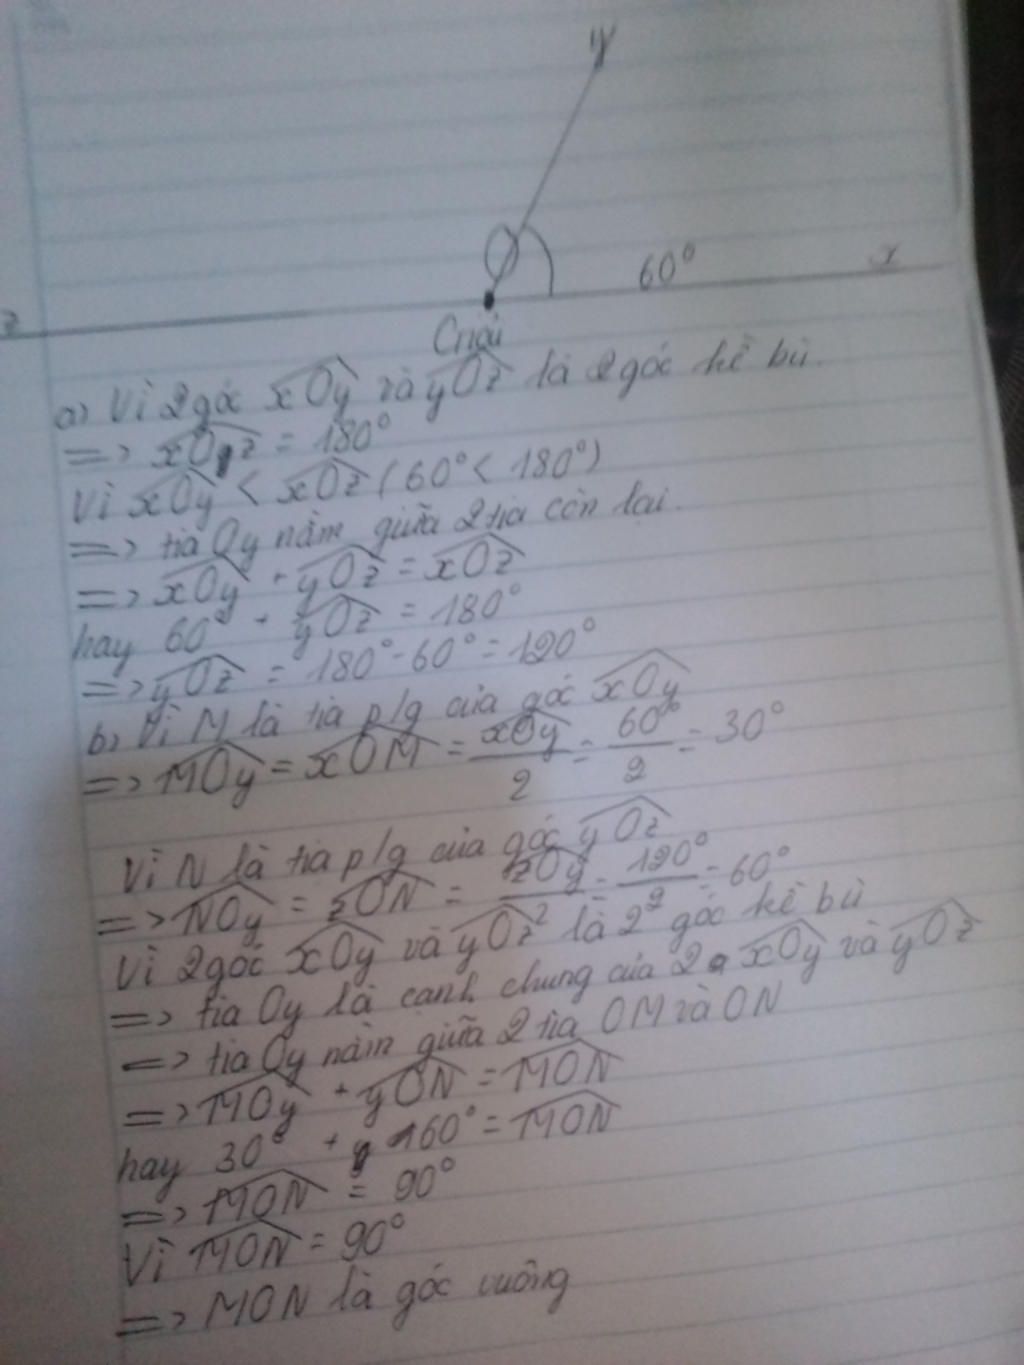 y
O
60°
x
z
Giải
a) Vì 2 góc xOy và yOz là 2 góc kề bù.
=> xOz = 180°
Vì xOy < xOz (60° < 180°)
=> tia Oy nằm giữa 2 tia còn lại.
=> xOy + yOz = xOz
hay 60° + yOz = 180°
=> yOz = 180° - 60° = 120°
b) Vì M là tia p/g của góc xOy
=> MOy = xOM = xOy/2 = 60°/2 = 30°
Vì N là tia p/g của góc yOz
=> NOy = zON = zOy/2 = 120°/2 = 60°
Vì 2 góc xOy và yOz là 2 góc kề bù
=> tia Oy là cạnh chung của 2 xOy và yOz
=> tia Oy nằm giữa 2 tia OM và ON
=> MOy + yON = MON
hay 30° + 60° = MON
=> MON = 90°
Vì MON = 90°
=> MON là góc vuông